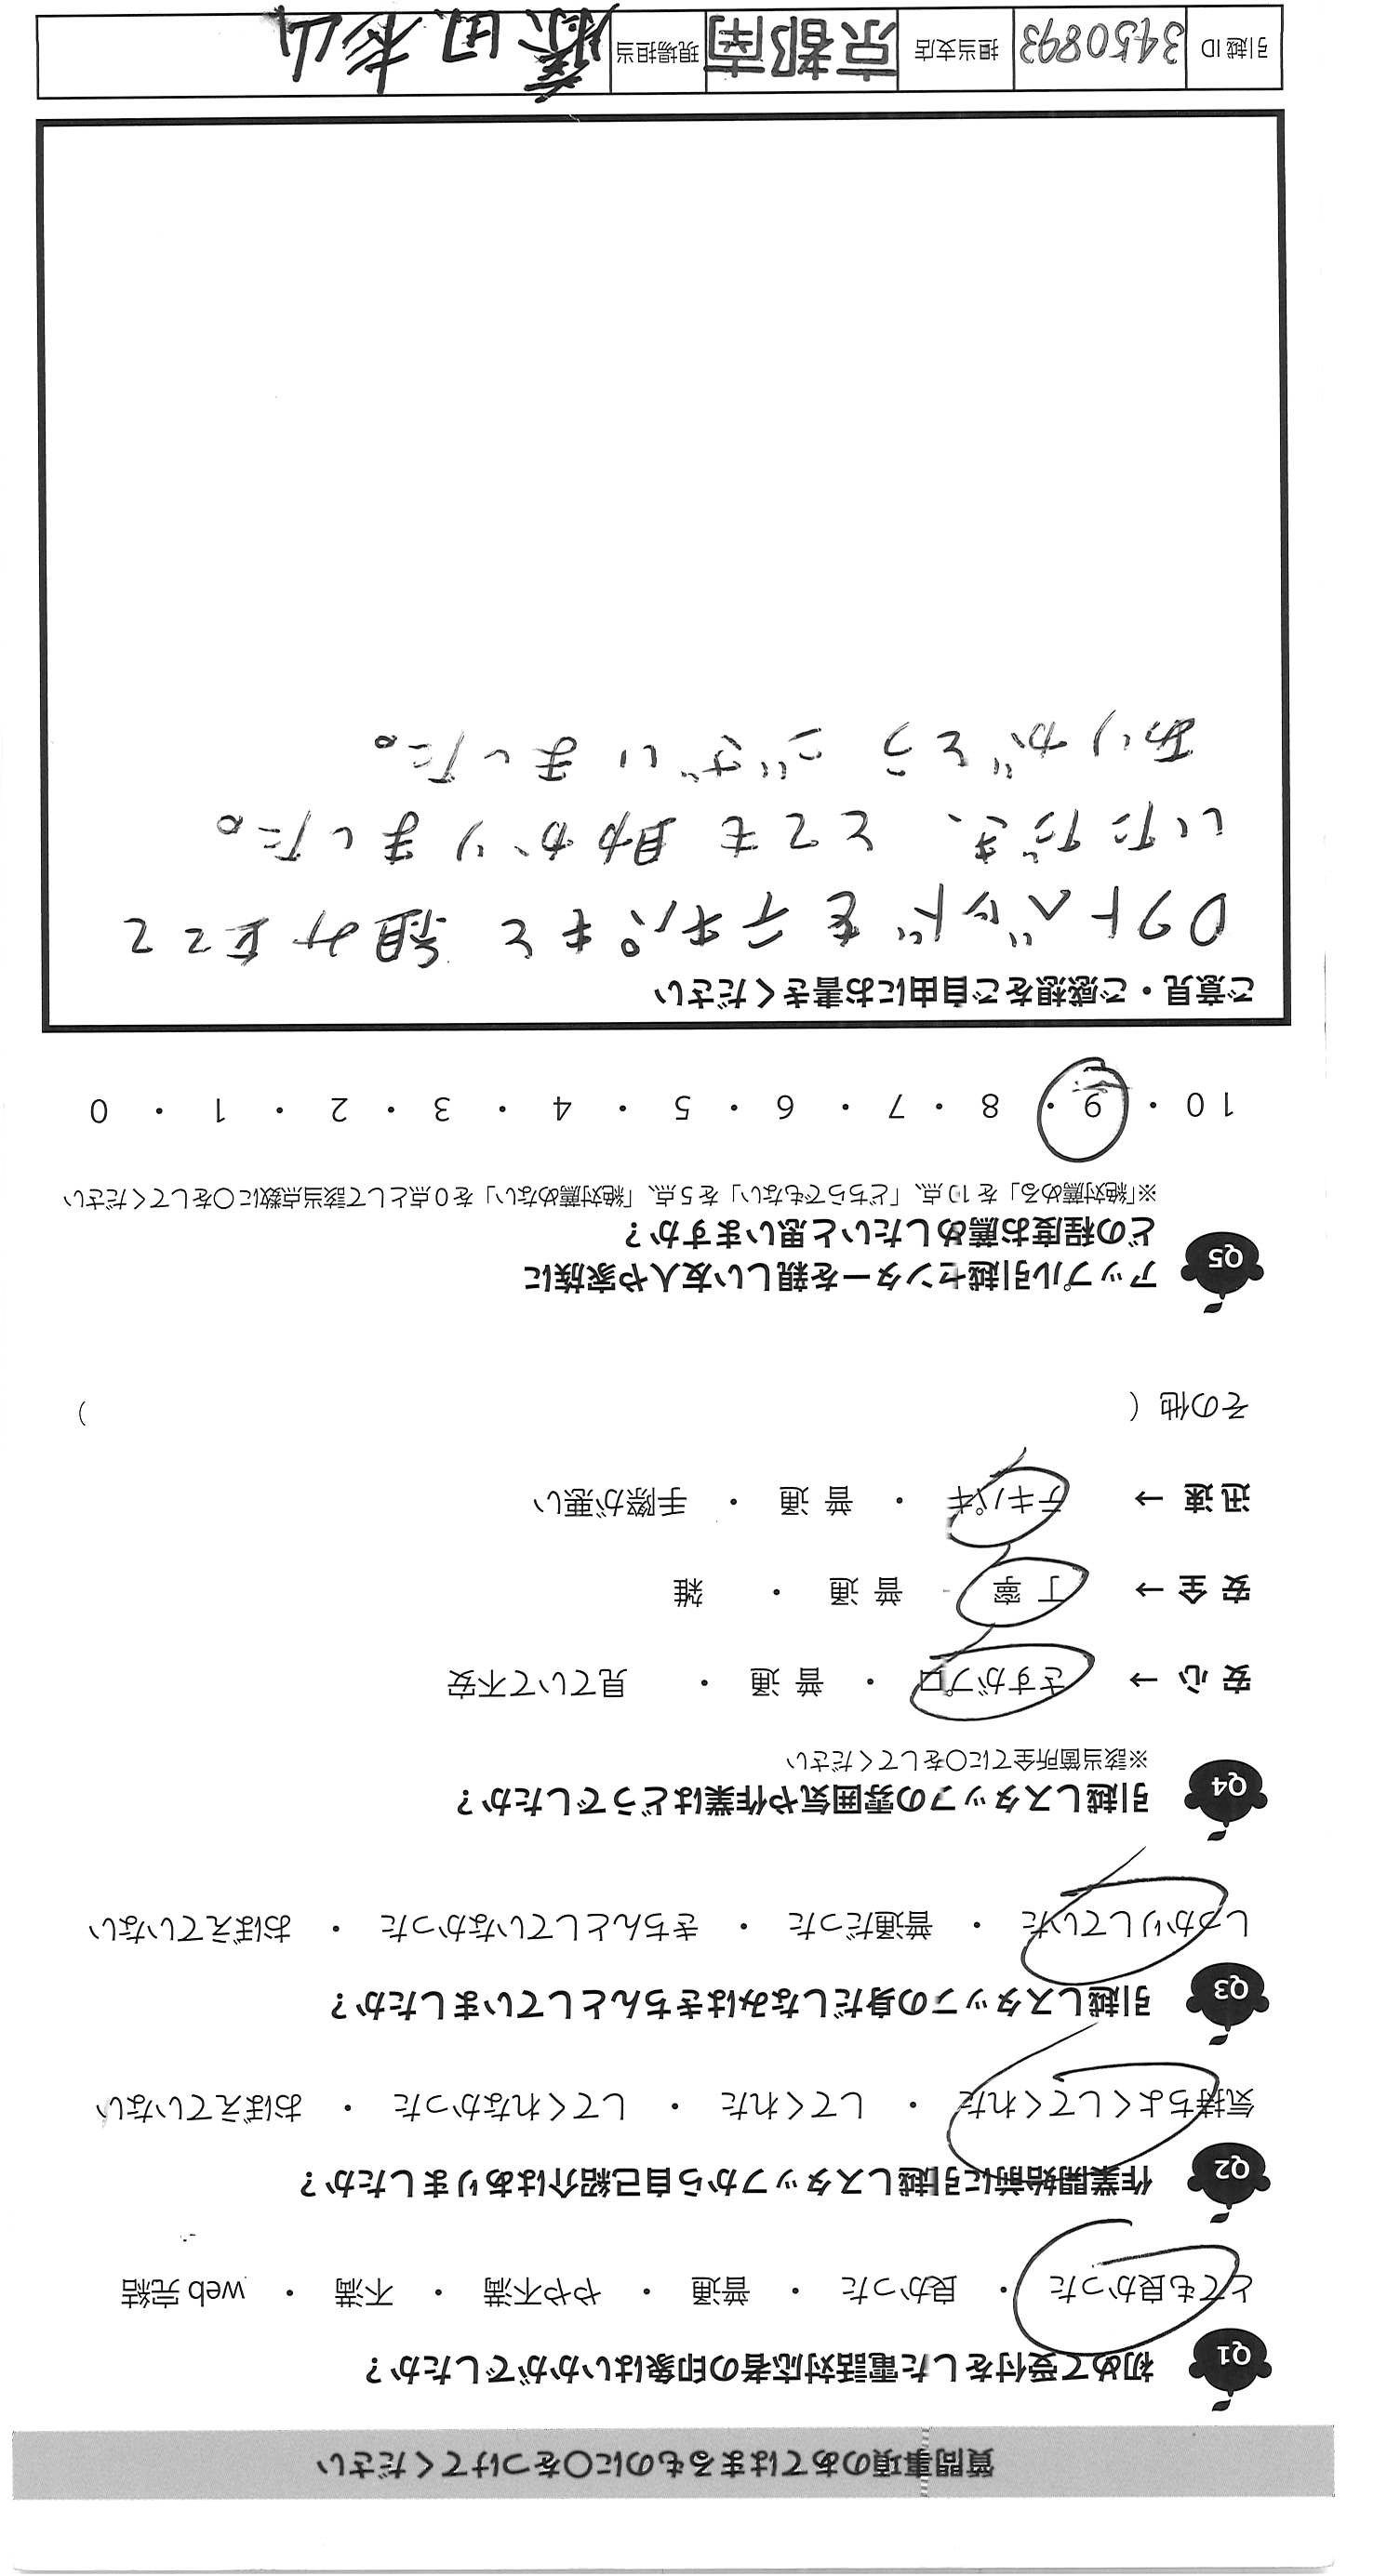 質問事項のあてはまるものに○をつけてください
Q1 初めて受付をした電話対応者の印象はいかがでしたか？
とても良かった ・ 良かった ・ 普通 ・ やや不満 ・ 不満 ・ web 完結
Q2 作業開始前に引越しスタッフから自己紹介はありましたか？
気持ちよくしてくれた ・ してくれた ・ してくれなかった ・ おぼえていない
Q3 引越しスタッフの身だしなみはきちんとしていましたか？
しっかりしていた ・ 普通だった ・ きちんとしていなかった ・ おぼえていない
Q4 引越しスタッフの雰囲気や作業はどうでしたか？
※該当箇所全てに○をしてください
安 心 → さすがプロ ・ 普 通 ・ 見ていて不安
安 全 → 丁 寧 ・ 普 通 ・ 雑
迅 速 → テキパキ ・ 普 通 ・ 手際が悪い
その他（ ）
Q5 アップル引越センターを親しい友人や家族に
どの程度お薦めしたいと思いますか？
※「絶対薦める」を 10 点、「どちらでもない」を 5 点、「絶対薦めない」を 0 点として該当点数に○をしてください
10 ・ 9 ・ 8 ・ 7 ・ 6 ・ 5 ・ 4 ・ 3 ・ 2 ・ 1 ・ 0
ご意見・ご感想をご自由にお書きください
ロフトベッドをテキパキと組み立てて
いただき、とても助かりました。
ありがとうございました。
引越 ID 3450893 担当支店 京都南 現場担当 藤田 杉山